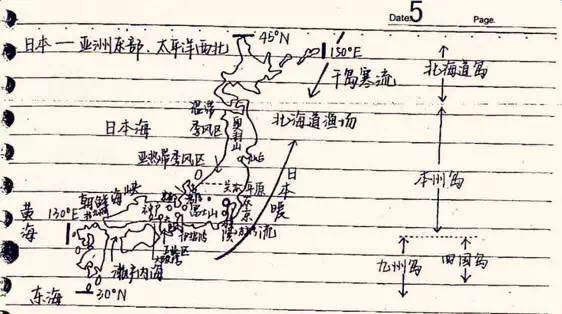 Date: 5 Page.
日本 — 亚洲东部、太平洋西北
45°N
150°E
千岛寒流
北海道岛
温带
季风区
奥羽山
北海道渔场
日本海
仙台
亚热带季风区
本州岛
关东平原
朝鲜海峡
神户
富士山
东京
横滨
日本暖流
黄海
130°E
伊势湾
濑户内海
九州岛
四国岛
东海
30°N